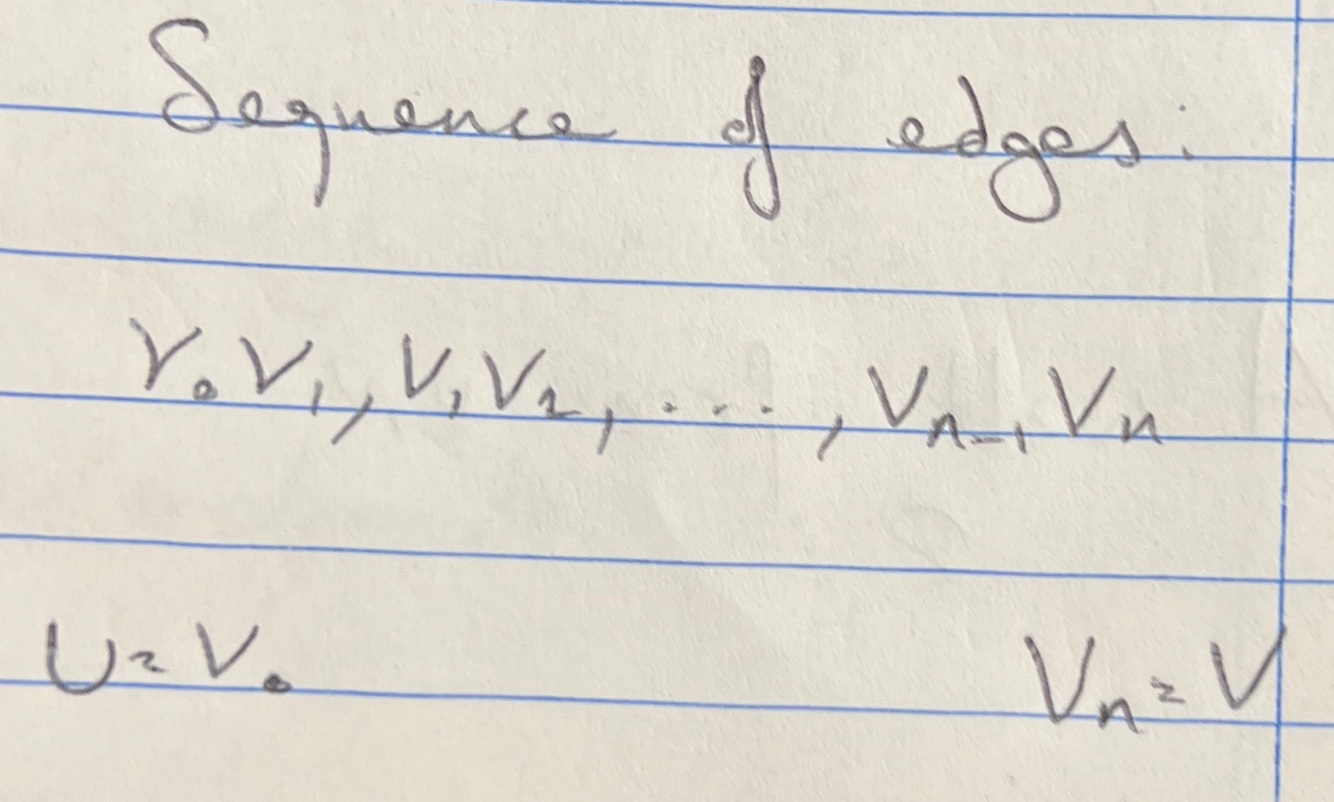 Sequence of edges:
V₀V₁, V₁V₂, ..., Vₙ₋₁Vₙ
U = V₀ Vₙ = V